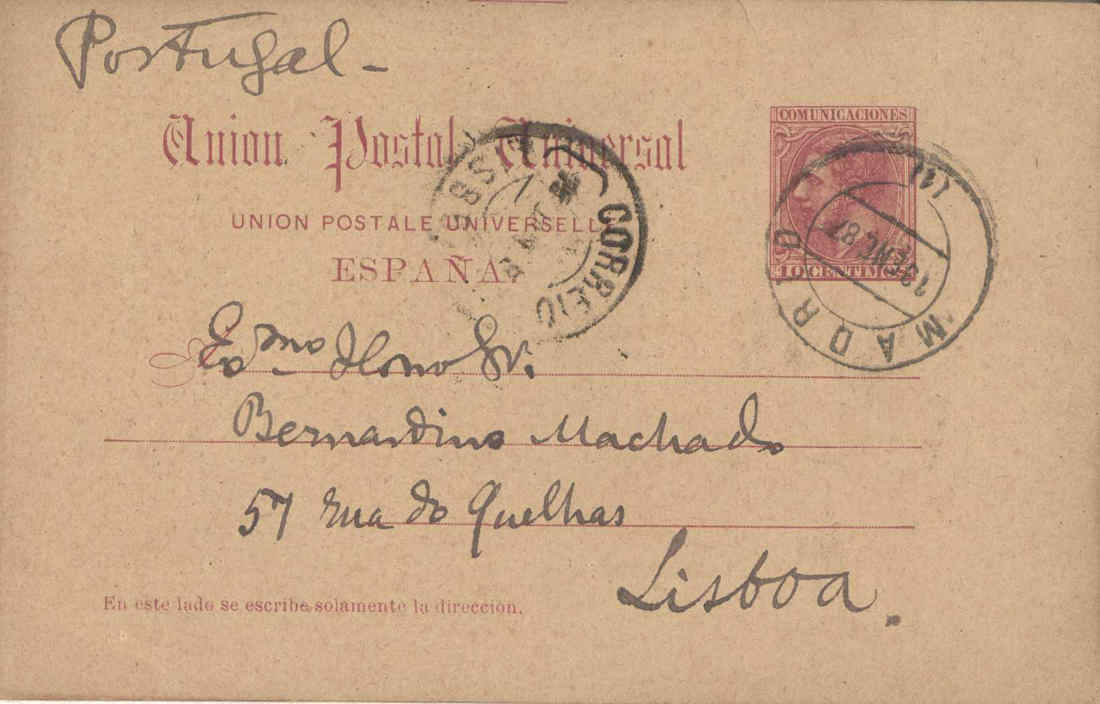 Portugal -
COMUNICACIONES
Union Postal Universal
UNION POSTALE UNIVERSELLE
ESPAÑA.
10 CENTIMOS
CORREIO
MADRID
ENE 87
Exmo Ilmo Sr.
Bernardino Machado
57 rua do Quelhas
Lisboa.
En este lado se escribe solamente la dirección.